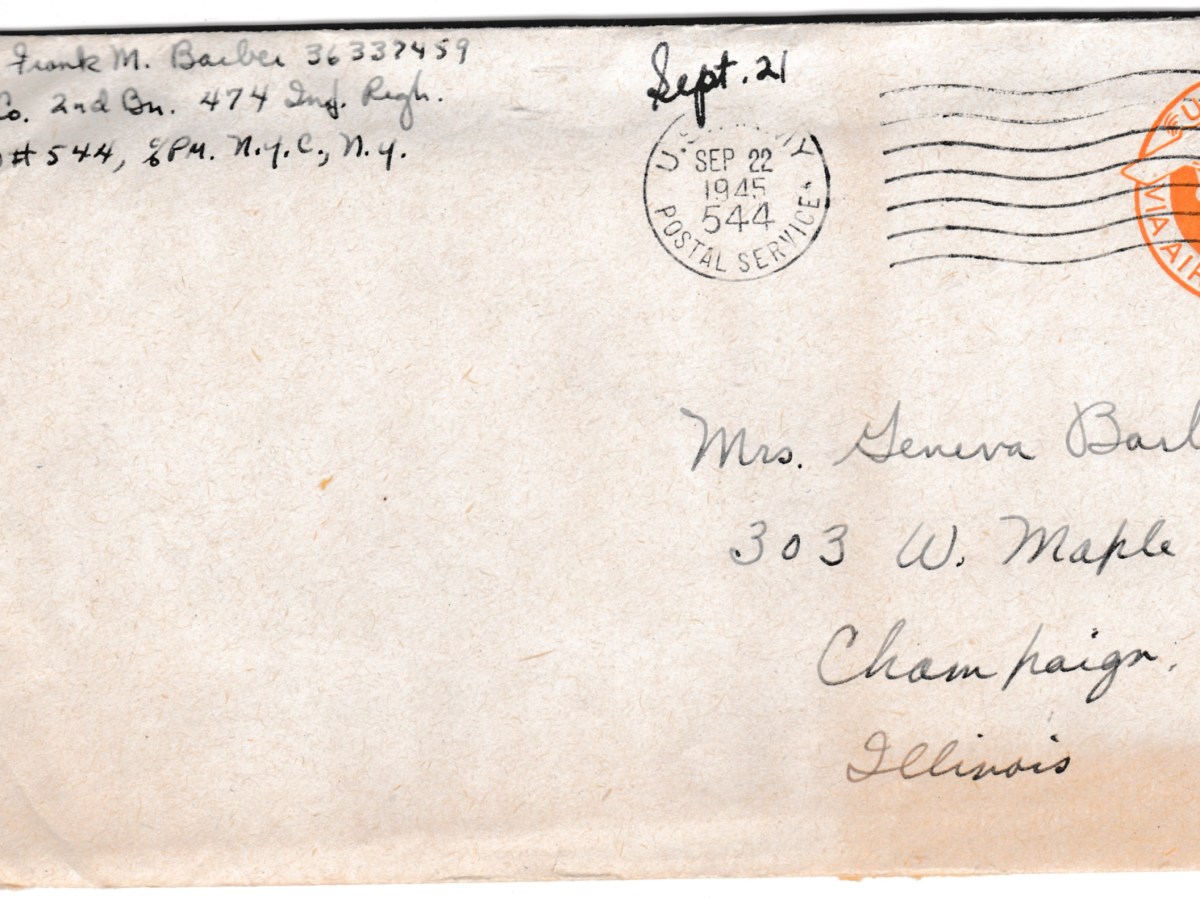 Frank M. Barber 36337459
Co. 2nd Bn. 474 Inf. Regt.
#544, c/o P.M. N.Y.C., N.Y.
Sept. 21
U.S. ARMY
SEP 22
1945
544
POSTAL SERVICE
U
VIA AIR
Mrs. Geneva Barb
303 W. Maple
Champaign,
Illinois